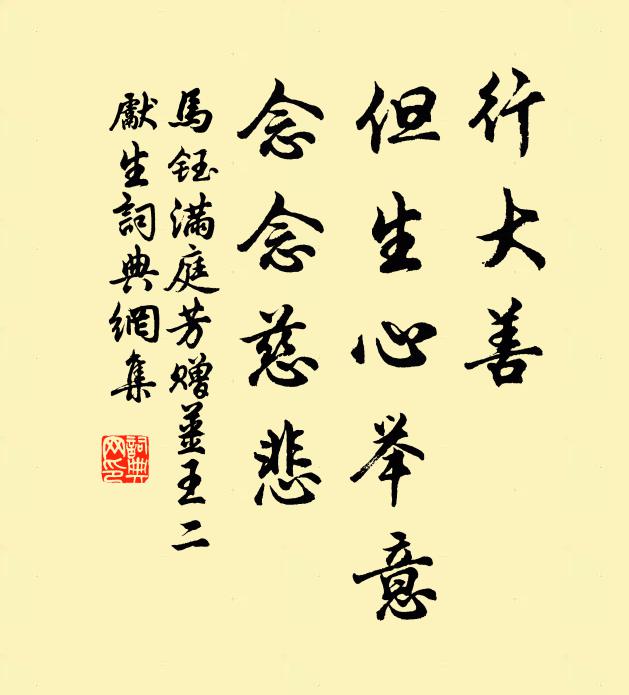 行大善
但生心举意
念念慈悲
馬鈺满庭芳赠薑王二
獻生詞典網集
詞典网印